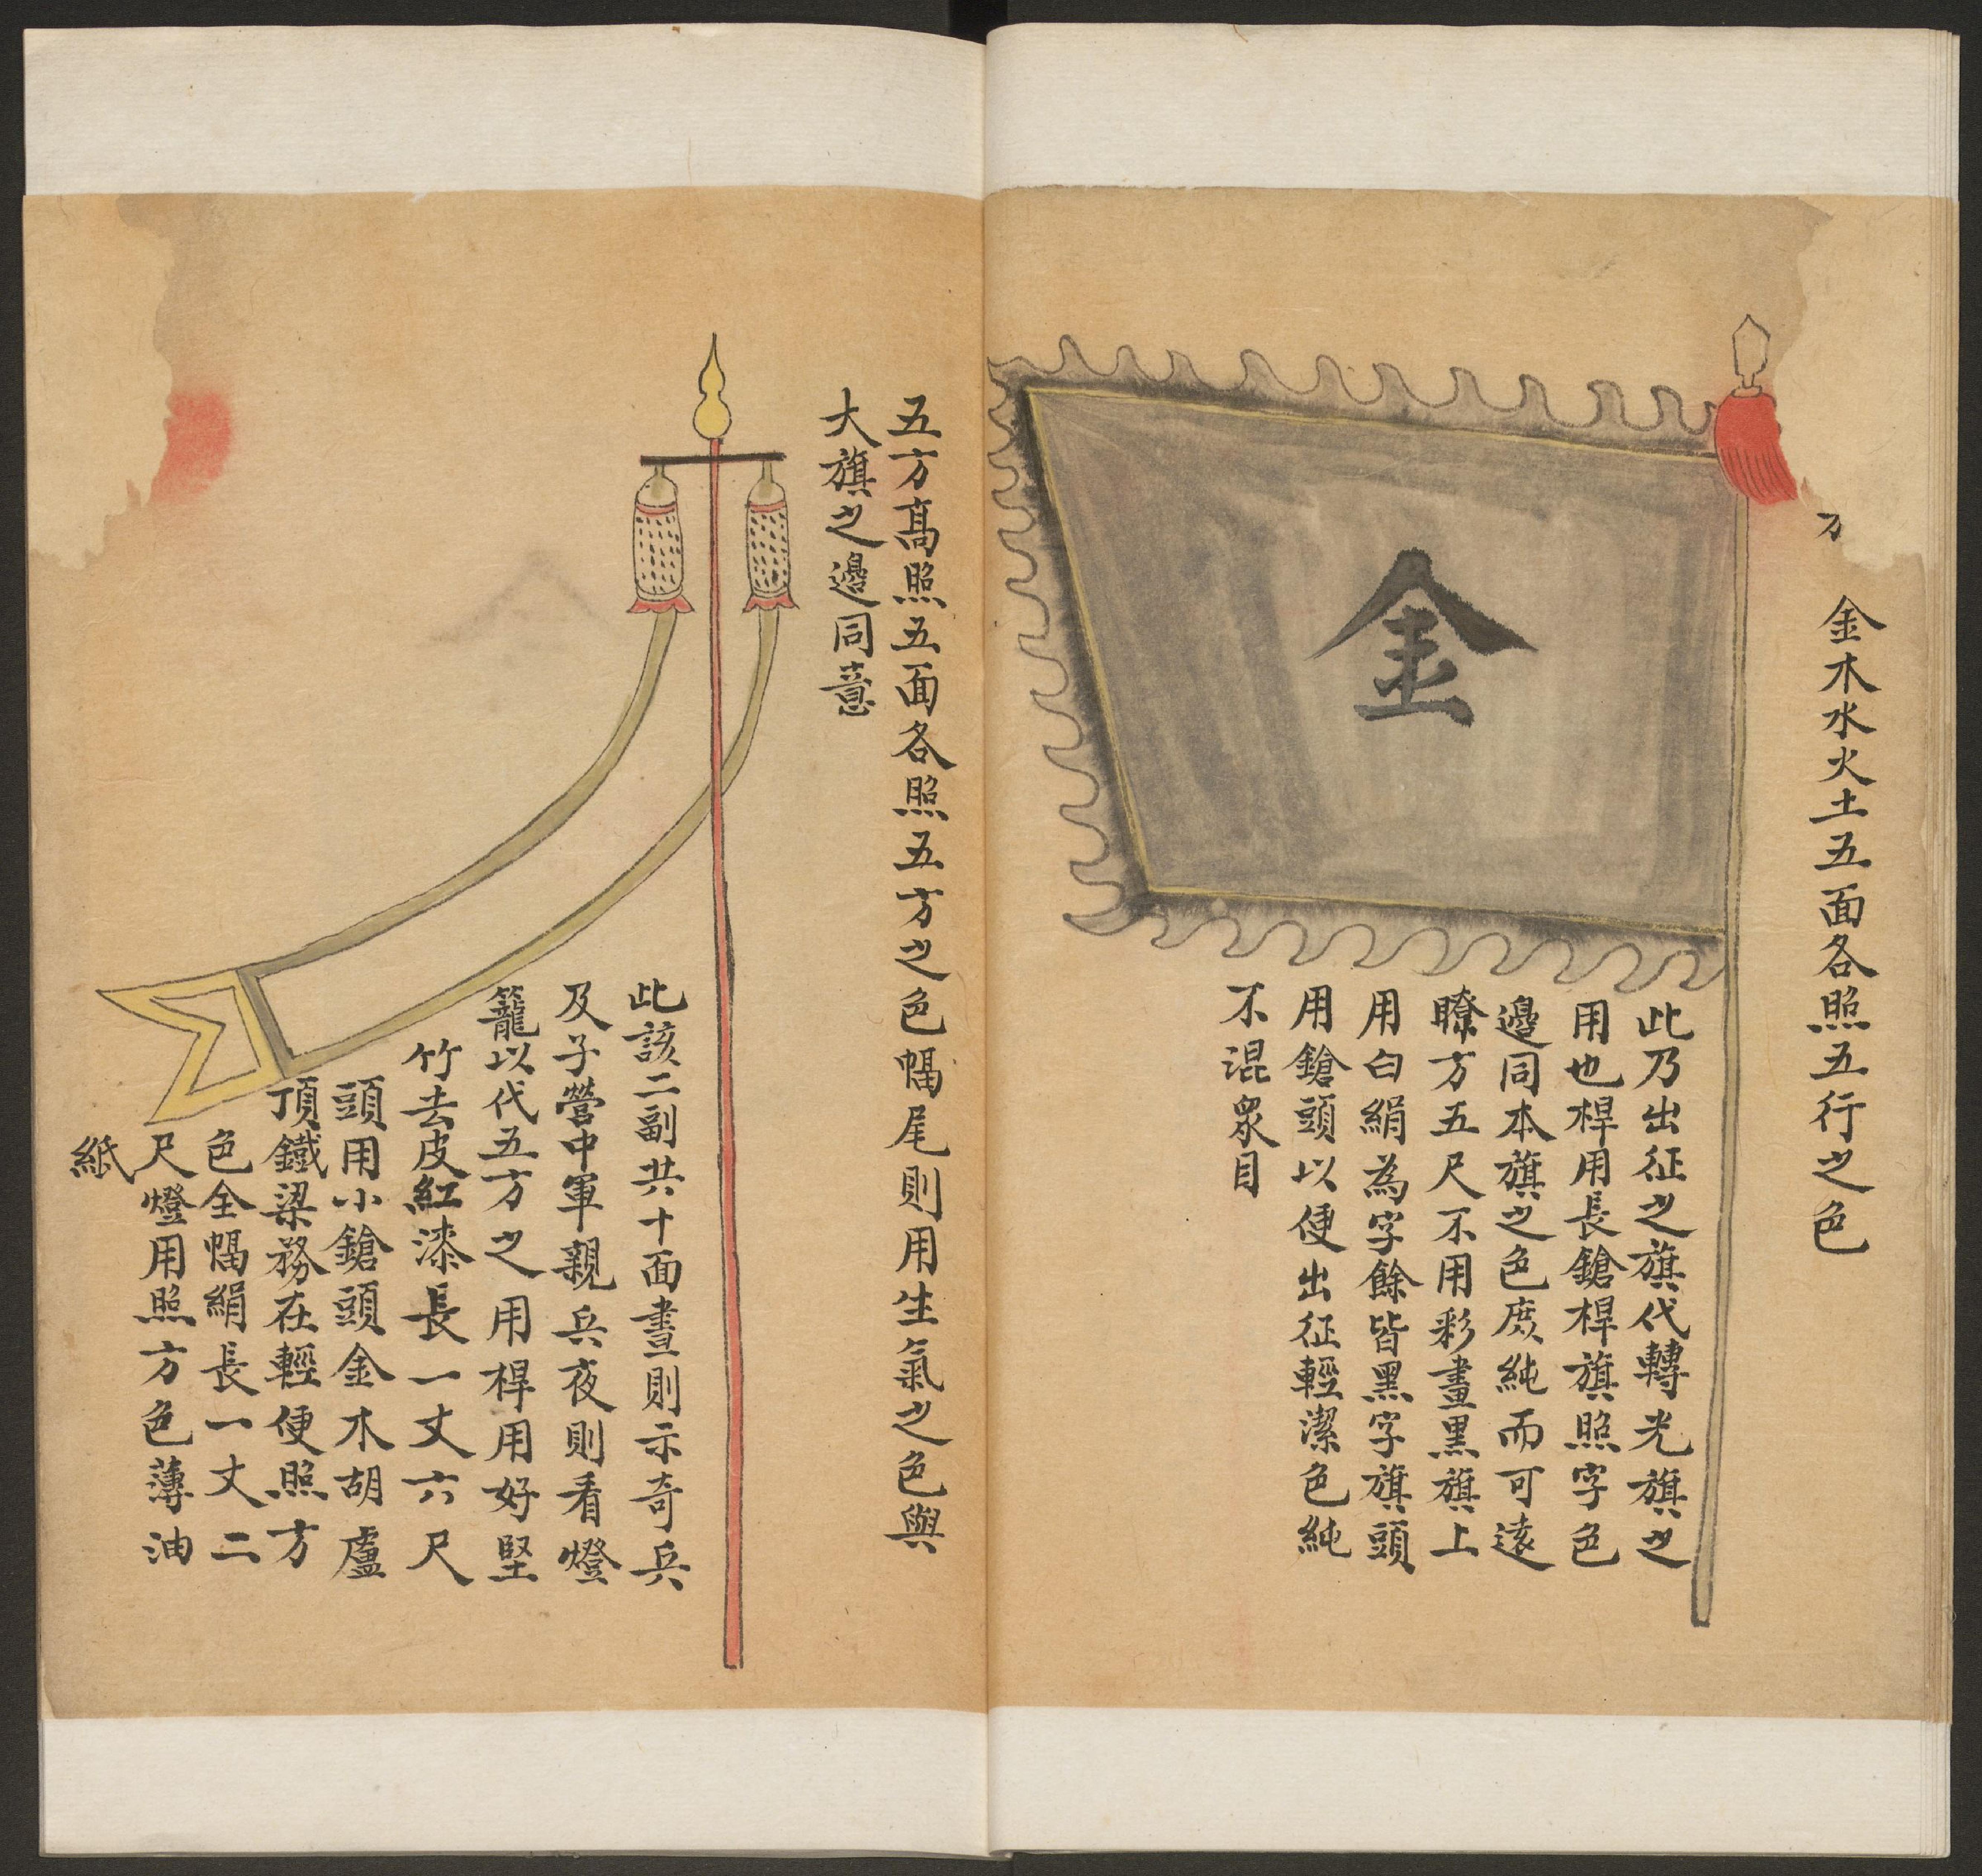 金木水火土五面各照五行之色
金
此乃出征之旗代轉光旗之
用也桿用長鎗桿旗照字色
邉同本旗之色庻純而可遠
瞭方五尺不用彩畫黒旗上
用白絹為字餘皆黒字旗頭
用鎗頭以便出征輕潔色純
不混衆目
五方髙照五面各照五方之色幅尾則用生氣之色與
大旗之邉同意
此該二副共十面晝則示奇兵
及子營中軍親兵夜則看燈
籠以代五方之用桿用好堅
竹去皮紅漆長一丈六尺
頭用小鎗頭金木胡盧
頂鐵梁務在輕便照方
色全幅絹長一丈二
尺燈用照方色薄油
紙